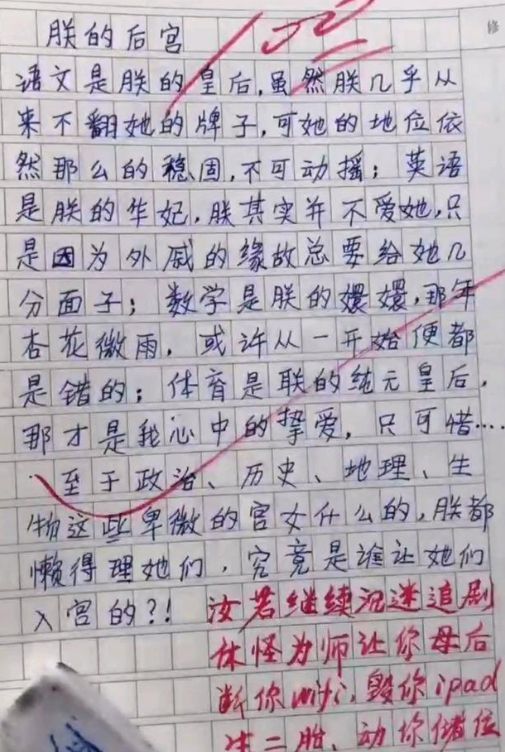 朕的后宫
语文是朕的皇后，虽然朕几乎从
来不翻她的牌子，可她的地位依
然那么的稳固，不可动摇；英语
是朕的华妃，朕其实并不爱她，只
是因为外戚的缘故总要给她几
分面子；数学是朕的嬛嬛，那年
杏花微雨，或许从一开始便都
是错的；体育是联的纯元皇后，
那才是我心中的挚爱，只可惜……
至于政治、历史、地理、生
物这些卑微的宫女什么的，朕都
懒得理她们，究竟是谁让她们
入宫的？！
汝若继续沉迷追剧
休怪为师让你母后
断你wifi，毁你ipad
生二胎、动你储位